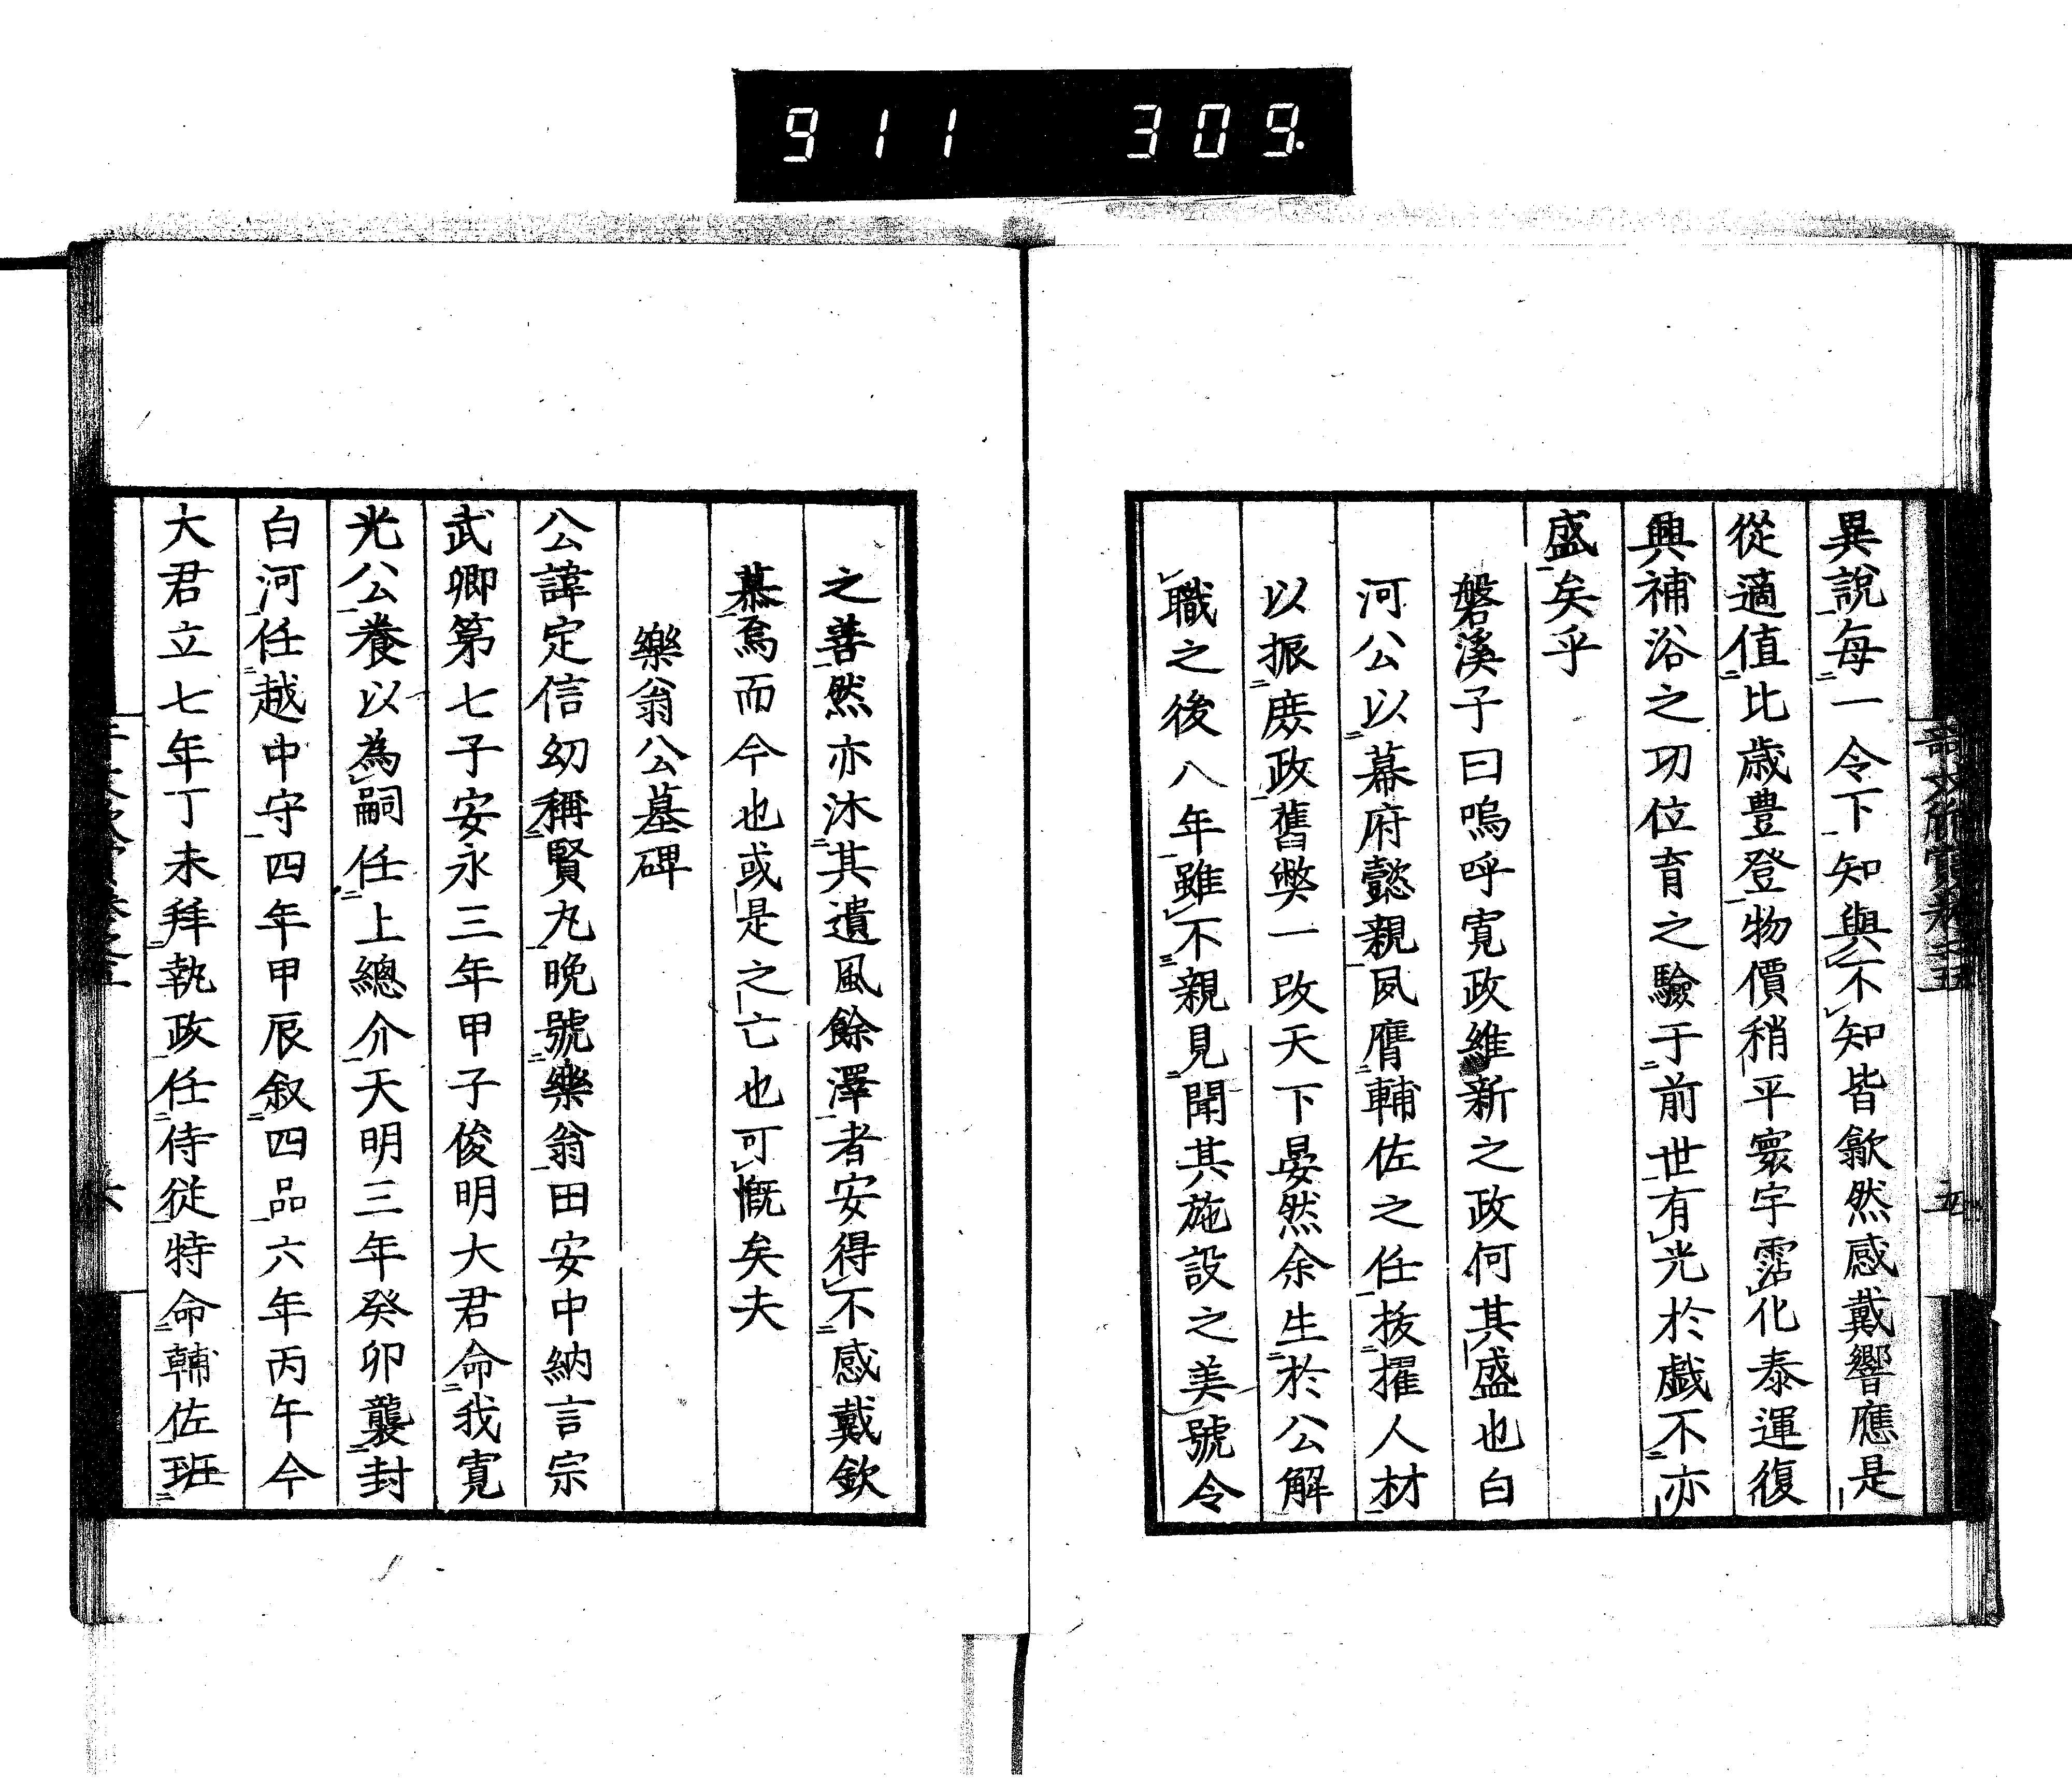 911 309.
異說每一令下知與不知皆歙然感戴響應是
從適值比歲豊登物價稍平寰宇霑化泰運復
興補浴之功位育之驗于前世有光於戯不亦
盛矣乎
磐溪子曰嗚呼寛政維新之政何其盛也白
河公以幕府懿親夙膺輔佐之任抜擢人材
以振庶政舊弊一改天下晏然余生於公解
職之後八年雖不親見聞其施設之美號令
之善然亦沐其遺風餘澤者安得不感戴欽
慕焉而今也或是之亡也可慨矣夫
樂翁公墓碑
公諱定信幼稱賢丸晚號樂翁田安中納言宗
武卿第七子安永三年甲子俊明大君命我寛
光公養以為嗣任上總介天明三年癸卯襲封
白河任越中守四年甲辰叙四品六年丙午今
大君立七年丁未拜執政任侍從特命輔佐班
六